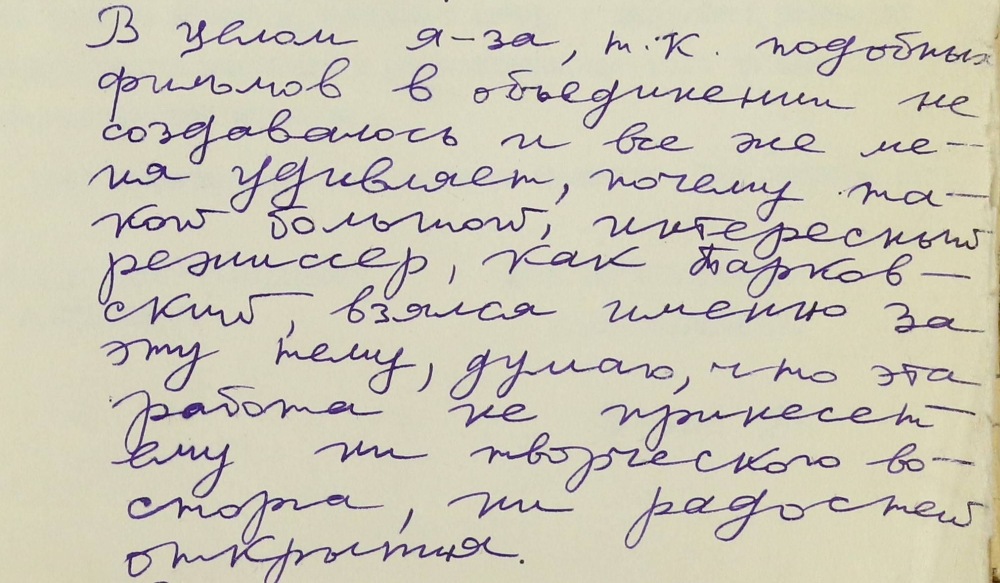 В целом я-за, т.к. подобных
фильмов в объединении не
создавалось и все же ме-
ня удивляет, почему та-
кой большой, интересный
режиссер, как Тарков-
ский, взялся именно за
эту тему, думаю, что эта
работа не принесет
ему ни творческого во-
сторга, ни радостей
открытия.